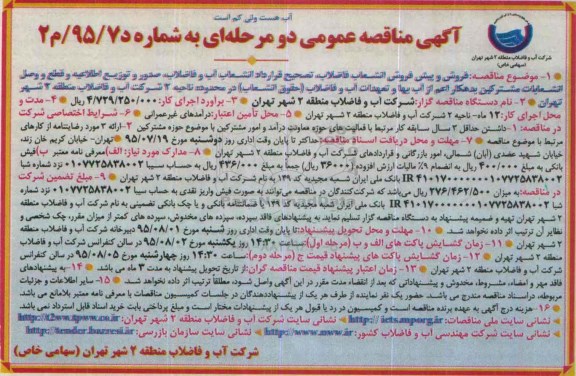 آب هست ولی کم است
آگهی مناقصه عمومی دو مرحله‌ای به شماره د۹۵/۷/م۲
شرکت آب و فاضلاب منطقه ۲ شهر تهران
(سهامی خاص)
۱- موضوع مناقصه: فروش و پیش فروش انشعاب فاضلاب، تصحیح قرارداد انشعاب آب و فاضلاب، صدور و توزیع اطلاعیه و قطع و وصل
انشعابات مشترکین بدهکار اعم از آب بها و تعهدات آب و فاضلاب (حقوق انشعاب) در محدوده ناحیه ۳ شرکت آب و فاضلاب منطقه ۲ شهر
تهران ۲- نام دستگاه مناقصه گزار: شرکت آب و فاضلاب منطقه ۲ شهر تهران ۳- برآورد اجرای کار: ۴/۷۲۹/۲۵۰/۰۰۰ ریال ۴- مدت و
محل اجرای کار: ۱۲ ماه- ناحیه ۳ شرکت آب و فاضلاب منطقه ۲ شهر تهران ۵- محل تأمین اعتبار: درآمدهای غیرعمرانی ۶- شرایط اختصاصی شرکت
در مناقصه: ۱- داشتن حداقل ۳ سال سابقه کار مرتبط با فعالیت حوزه معاونت درآمد و امور مشترکین با موضوع حوزه مشترکین ۲- ارائه ۲ مورد رضایتنامه از کارهای
مرتبط با موضوع مناقصه ۷- مهلت و محل دریافت اسناد مناقصه: حداکثر تا پایان وقت اداری روز دوشنبه مورخ ۹۵/۰۷/۱۹ تهران- خیابان کریم خان زند،
خیابان شهید عضدی (آبان) شمالی، امور بازرگانی و قراردادهای شرکت آب و فاضلاب منطقه ۲ شهر تهران ۸- مدارک مورد نیاز: الف) معرفی نامه معتبر ب) فیش
بانکی به مبلغ ۴۰۰/۰۰۰ ریال به انضمام ۹٪ مالیات ارزش افزوده (۳۶۰۰۰ ریال) جمعاً به مبلغ ۴۳۶/۰۰۰ ریال به حساب سیبا ۰۱۰۷۷۲۵۸۳۸۰۰۲ نزد شماره شبا
IR ۴۱۰۱۷۰۰۰۰۰۰۰۱۰۷۷۲۵۸۳۸۰۰۲ بانک ملی ایران شعبه مجیدیه کد ۱۴۹ به نام شرکت آب و فاضلاب منطقه ۲ شهر تهران ۹- مبلغ تضمین شرکت
در مناقصه: به میزان ۲۳۶/۴۶۲/۵۰۰ ریال می‌باشد که شرکت‌کنندگان در مناقصه می‌توانند به صورت فیش واریز نقدی به حساب سیبا ۰۱۰۷۷۲۵۸۳۸۰۰۲ نزد شماره
شبا IR ۴۱۰۱۷۰۰۰۰۰۰۰۱۰۷۷۲۵۸۳۸۰۰۲ بانک ملی ایران شعبه مجیدیه کد ۱۴۹ یا ضمانتنامه بانکی و یا چک بانکی تضمینی به نام شرکت آب و فاضلاب منطقه
۲ شهر تهران تهیه و ضمیمه پیشنهاد به دستگاه مناقصه گزار تسلیم نماید، به پیشنهادهای فاقد سپرده، سپرده های مخدوش، سپرده های کمتر از میزان مقرر، چک شخصی و
نظایر آن ترتیب اثر داده نخواهد شد. ۱۰- مهلت و محل تحویل پیشنهادها: تا پایان وقت اداری روز شنبه مورخ ۹۵/۰۸/۰۱ دبیرخانه شرکت آب و فاضلاب منطقه
۲ شهر تهران ۱۱- زمان گشایش پاکت های الف و ب (مرحله اول): ساعت ۱۴:۳۰ روز یکشنبه مورخ ۹۵/۰۸/۰۲ در سالن کنفرانس شرکت آب و فاضلاب
منطقه ۲ تهران ۱۲- زمان گشایش پاکت های پیشنهاد قیمت ج (مرحله دوم): ساعت ۱۴:۳۰ روز چهارشنبه مورخ ۹۵/۰۸/۰۵ در سالن کنفرانس
شرکت آب و فاضلاب منطقه ۲ شهر تهران ۱۳- زمان اعتبار پیشنهاد قیمت مناقصه گران: از تاریخ تحویل پیشنهاد به مدت ۳ ماه می باشد. ۱۴- به پیشنهادهای
فاقد مهر و امضاء، مشروط، مخدوش و پیشنهاداتی که بعد از انقضاء مدت مقرر در این آگهی واصل شود، مطلقاً ترتیب اثر داده نخواهد شد. ۱۵- سایر اطلاعات و جزئیات
مربوطه، در اسناد مناقصه مندرج می باشد. حضور یک نفر نماینده از طرف هر یک از پیشنهاددهندگان در جلسات کمیسیون مناقصات با معرفی نامه معتبر بلامانع می باشد
۱۶- هزینه درج آگهی به عهده برنده مناقصه است و کمیسیون در رد یا قبول هر یک از پیشنهادات مختار است و مبلغ پرداختی بابت خرید اسناد قابل استرداد نمی باشد
نشانی سایت ملی مناقصات: http://iets.mporg.ir نشانی سایت شرکت آب و فاضلاب منطقه ۲ شهر تهران: http://t2ww.tpww.co.ir
نشانی سایت شرکت مهندسی آب و فاضلاب کشور: http://www.nww.ir نشانی سایت سازمان بازرسی: http://tender.bazresi.ir
شرکت آب و فاضلاب منطقه ۲ شهر تهران (سهامی خاص)